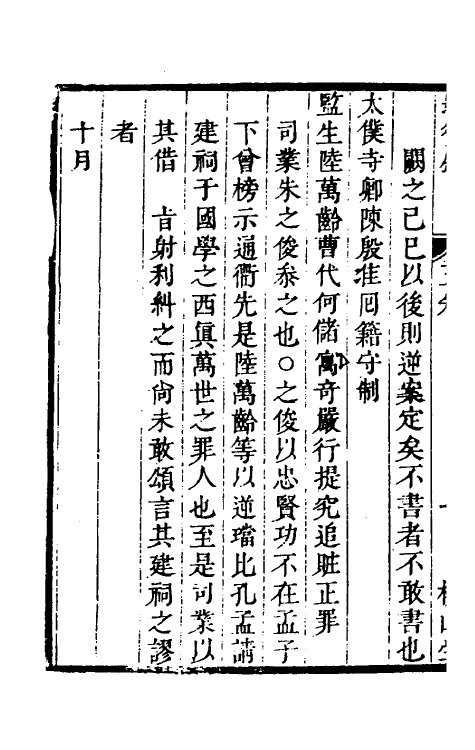 闕之己巳以後則逆案定矣不書者不敢書也
太僕寺卿陳殷准囘籍守制
監生陸萬齡曹代何儲寓竒嚴行提究追賍正罪
司業朱之俊叅之也○之俊以忠賢功不在孟子
下曾榜示通衢先是陸萬齡等以逆璫比孔孟請
建祠于國學之西眞萬世之罪人也至是司業以
其借　旨射利糾之而尙未敢頌言其建祠之謬
者
十月